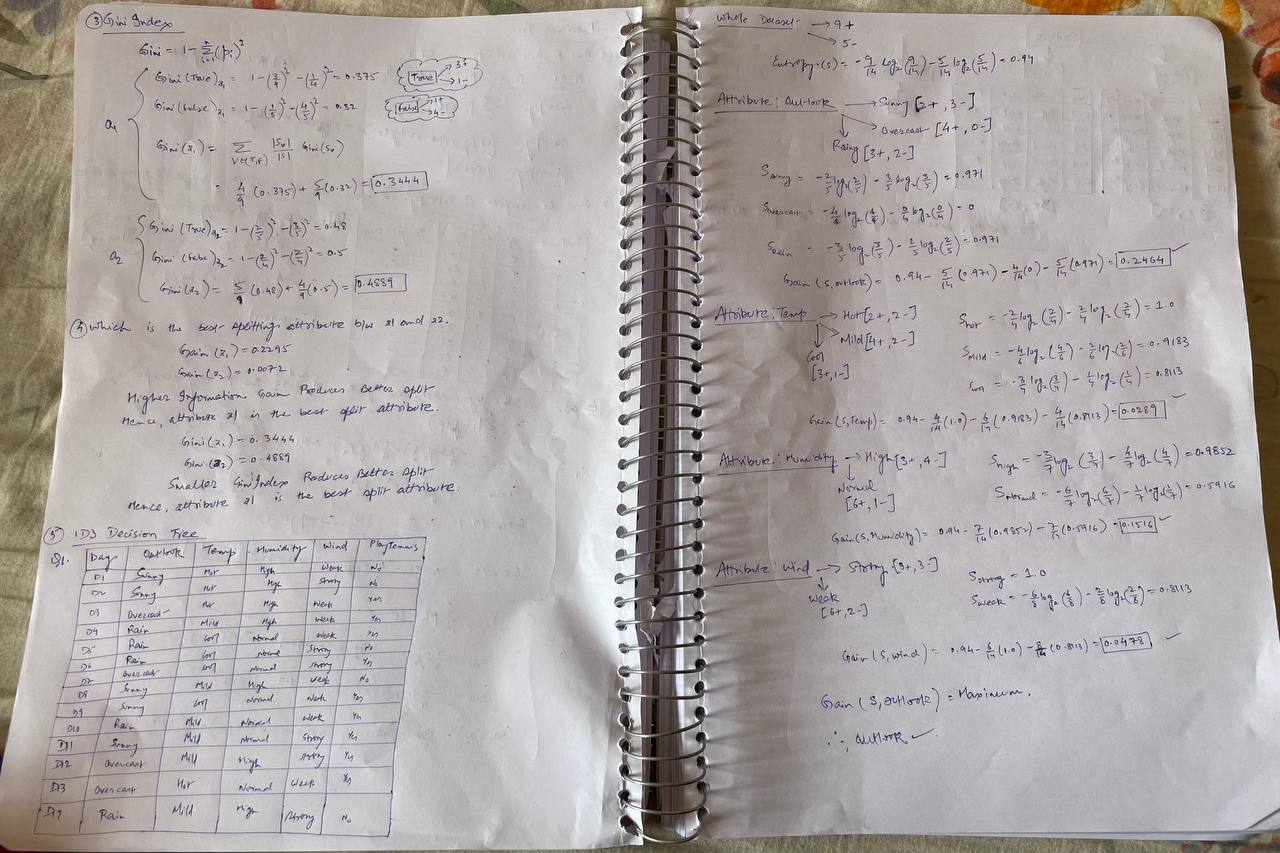 ③ Gini Index
Gini = 1 - Σ(pi)²
a1
Gini (True)a1 = 1-(3/4)² -(1/4)² = 0.375
True 3+ 1-
Gini (False)a1 = 1-(1/5)² -(4/5)² = 0.32
False 1+ 4-
Gini (a1) = Σ V∈(T,F) |Sv|/|S| Gini (Sv)
= 4/9 (0.375) + 5/9 (0.32) = 0.3444
a2
Gini (True)a2 = 1-(2/5)² -(3/5)² = 0.48
Gini (False)a2 = 1-(2/4)² -(2/4)² = 0.5
Gini (a2) = 5/9 (0.48) + 4/9 (0.5) = 0.4889
④ Which is the best splitting attribute b/w a1 and a2.
Gain (a1) = 0.2295
Gain (a2) = 0.0072
Higher Information Gain Produces Better split
Hence, attribute a1 is the best split attribute.
Gini (a1) = 0.3444
Gini (a2) = 0.4889
Smaller Gini Index Produces Better Split
Hence, attribute a1 is the best split attribute.
⑤ ID3 Decision Tree
Q1.
Day Outlook Temp Humidity Wind PlayTennis
D1 Sunny Hot High Weak No
D2 Sunny Hot High Strong No
D3 Overcast Hot High Weak Yes
D4 Rain Mild High Weak Yes
D5 Rain Cool Normal Weak Yes
D6 Rain Cool Normal Strong No
D7 Overcast Cool Normal Strong Yes
D8 Sunny Mild High Weak No
D9 Sunny Cool Normal Weak Yes
D10 Rain Mild Normal Weak Yes
D11 Sunny Mild Normal Strong Yes
D12 Overcast Mild High Strong Yes
D13 Overcast Hot Normal Weak Yes
D14 Rain Mild High Strong No
Whole Dataset → 9+
→ 5-
Entropy (S) = -9/14 log2(9/14) - 5/14 log2(5/14) = 0.94
Attribute: Outlook → Sunny [2+, 3-]
→ Overcast [4+, 0-]
↓ Rainy [3+, 2-]
Ssunny = -2/5 log2(2/5) - 3/5 log2(3/5) = 0.971
Sovercast = -4/4 log2(4/4) - 0/4 log2(0/4) = 0
SRain = -3/5 log2(3/5) - 2/5 log2(2/5) = 0.971
Gain (S, outlook) = 0.94 - 5/14 (0.971) - 4/14 (0) - 5/14 (0.971) = 0.2464 ✓
Attribute: Temp → Hot [2+, 2-]
→ Mild [4+, 2-]
↓ Cool [3+, 1-]
Shot = -2/4 log2(2/4) - 2/4 log2(2/4) = 1.0
SMild = -4/6 log2(4/6) - 2/6 log2(2/6) = 0.9183
Scool = -3/4 log2(3/4) - 1/4 log2(1/4) = 0.8113
Gain (S, Temp) = 0.94 - 4/14 (1.0) - 6/14 (0.9183) - 4/14 (0.8113) = 0.0289 ✓
Attribute: Humidity → High [3+, 4-]
↓ Normal [6+, 1-]
Shigh = -3/7 log2(3/7) - 4/7 log2(4/7) = 0.9852
SNormal = -6/7 log2(6/7) - 1/7 log2(1/7) = 0.5916
Gain (S, Humidity) = 0.94 - 7/14 (0.9852) - 7/14 (0.5916) = 0.1516 ✓
Attribute: Wind → Strong [3+, 3-]
↓ Weak [6+, 2-]
Sstrong = 1.0
Sweak = -6/8 log2(6/8) - 2/8 log2(2/8) = 0.8113
Gain (S, wind) = 0.94 - 6/14 (1.0) - 8/14 (0.8113) = 0.0478 ✓
Gain (S, outlook) = Maximum.
∴, outlook ✓